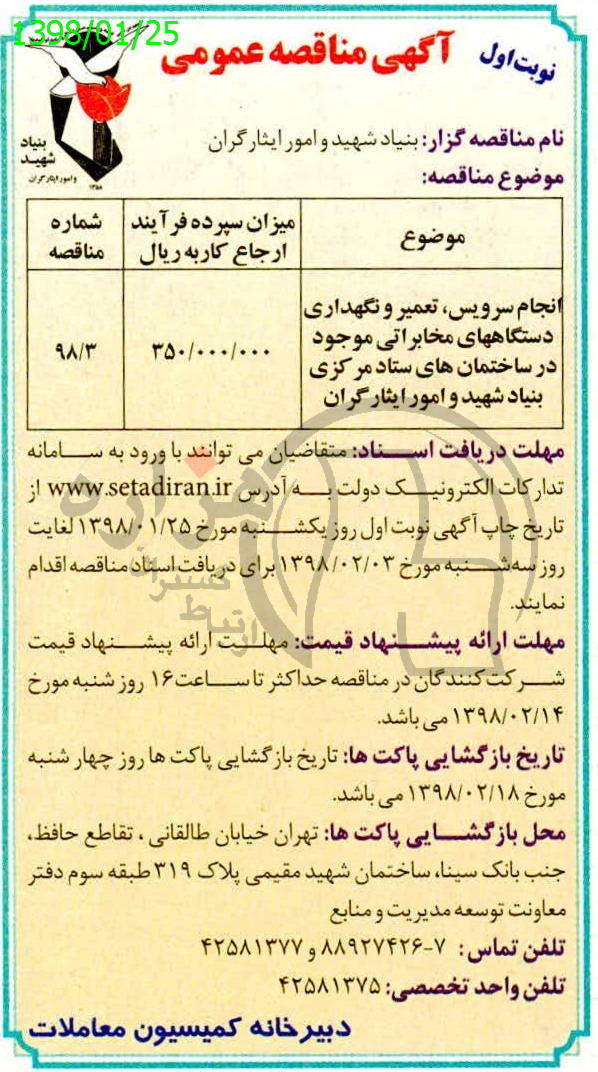 1398/01/25
نوبت اول
آگهی مناقصه عمومی
بنیاد
شهید
و امور ایثارگران
۱۳۵۸
نام مناقصه گزار: بنیاد شهید و امور ایثارگران
موضوع مناقصه:
موضوع
میزان سپرده فرآیند
ارجاع کار به ریال
شماره
مناقصه
انجام سرویس، تعمیر و نگهداری
دستگاههای مخابراتی موجود
در ساختمان های ستاد مرکزی
بنیاد شهید و امور ایثارگران
۳۵۰/۰۰۰/۰۰۰
۹۸/۳
مهلت دریافت اسناد: متقاضیان می توانند با ورود به سامانه
تدارکات الکترونیک دولت به آدرس www.setadiran.ir از
تاریخ چاپ آگهی نوبت اول روز یکشنبه مورخ ۱۳۹۸/۰۱/۲۵ لغایت
روز سه‌شنبه مورخ ۱۳۹۸/۰۲/۰۳ برای دریافت اسناد مناقصه اقدام
نمایند.
مهلت ارائه پیشنهاد قیمت: مهلت ارائه پیشنهاد قیمت
شرکت‌کنندگان در مناقصه حداکثر تا ساعت ۱۶ روز شنبه مورخ
۱۳۹۸/۰۲/۱۴ می باشد.
تاریخ بازگشایی پاکت ها: تاریخ بازگشایی پاکت ها روز چهار شنبه
مورخ ۱۳۹۸/۰۲/۱۸ می باشد.
محل بازگشایی پاکت ها: تهران خیابان طالقانی ، تقاطع حافظ،
جنب بانک سینا، ساختمان شهید مقیمی پلاک ۳۱۹ طبقه سوم دفتر
معاونت توسعه مدیریت و منابع
تلفن تماس : ۷-۸۸۹۲۷۴۲۶ و ۴۲۵۸۱۳۷۷
تلفن واحد تخصصی: ۴۲۵۸۱۳۷۵
دبیرخانه کمیسیون معاملات
هزاره
گستران
ارتباط